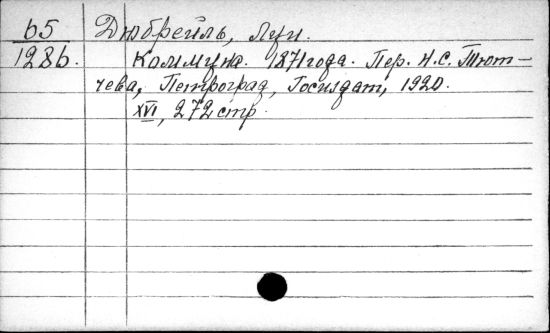 65 Дюбрейль, Луи.
1286. Коммуна. 1871 года. Пер. Н.С. Тют-
чева, Петроград, Госиздат, 1920.
XVI, 272 стр.